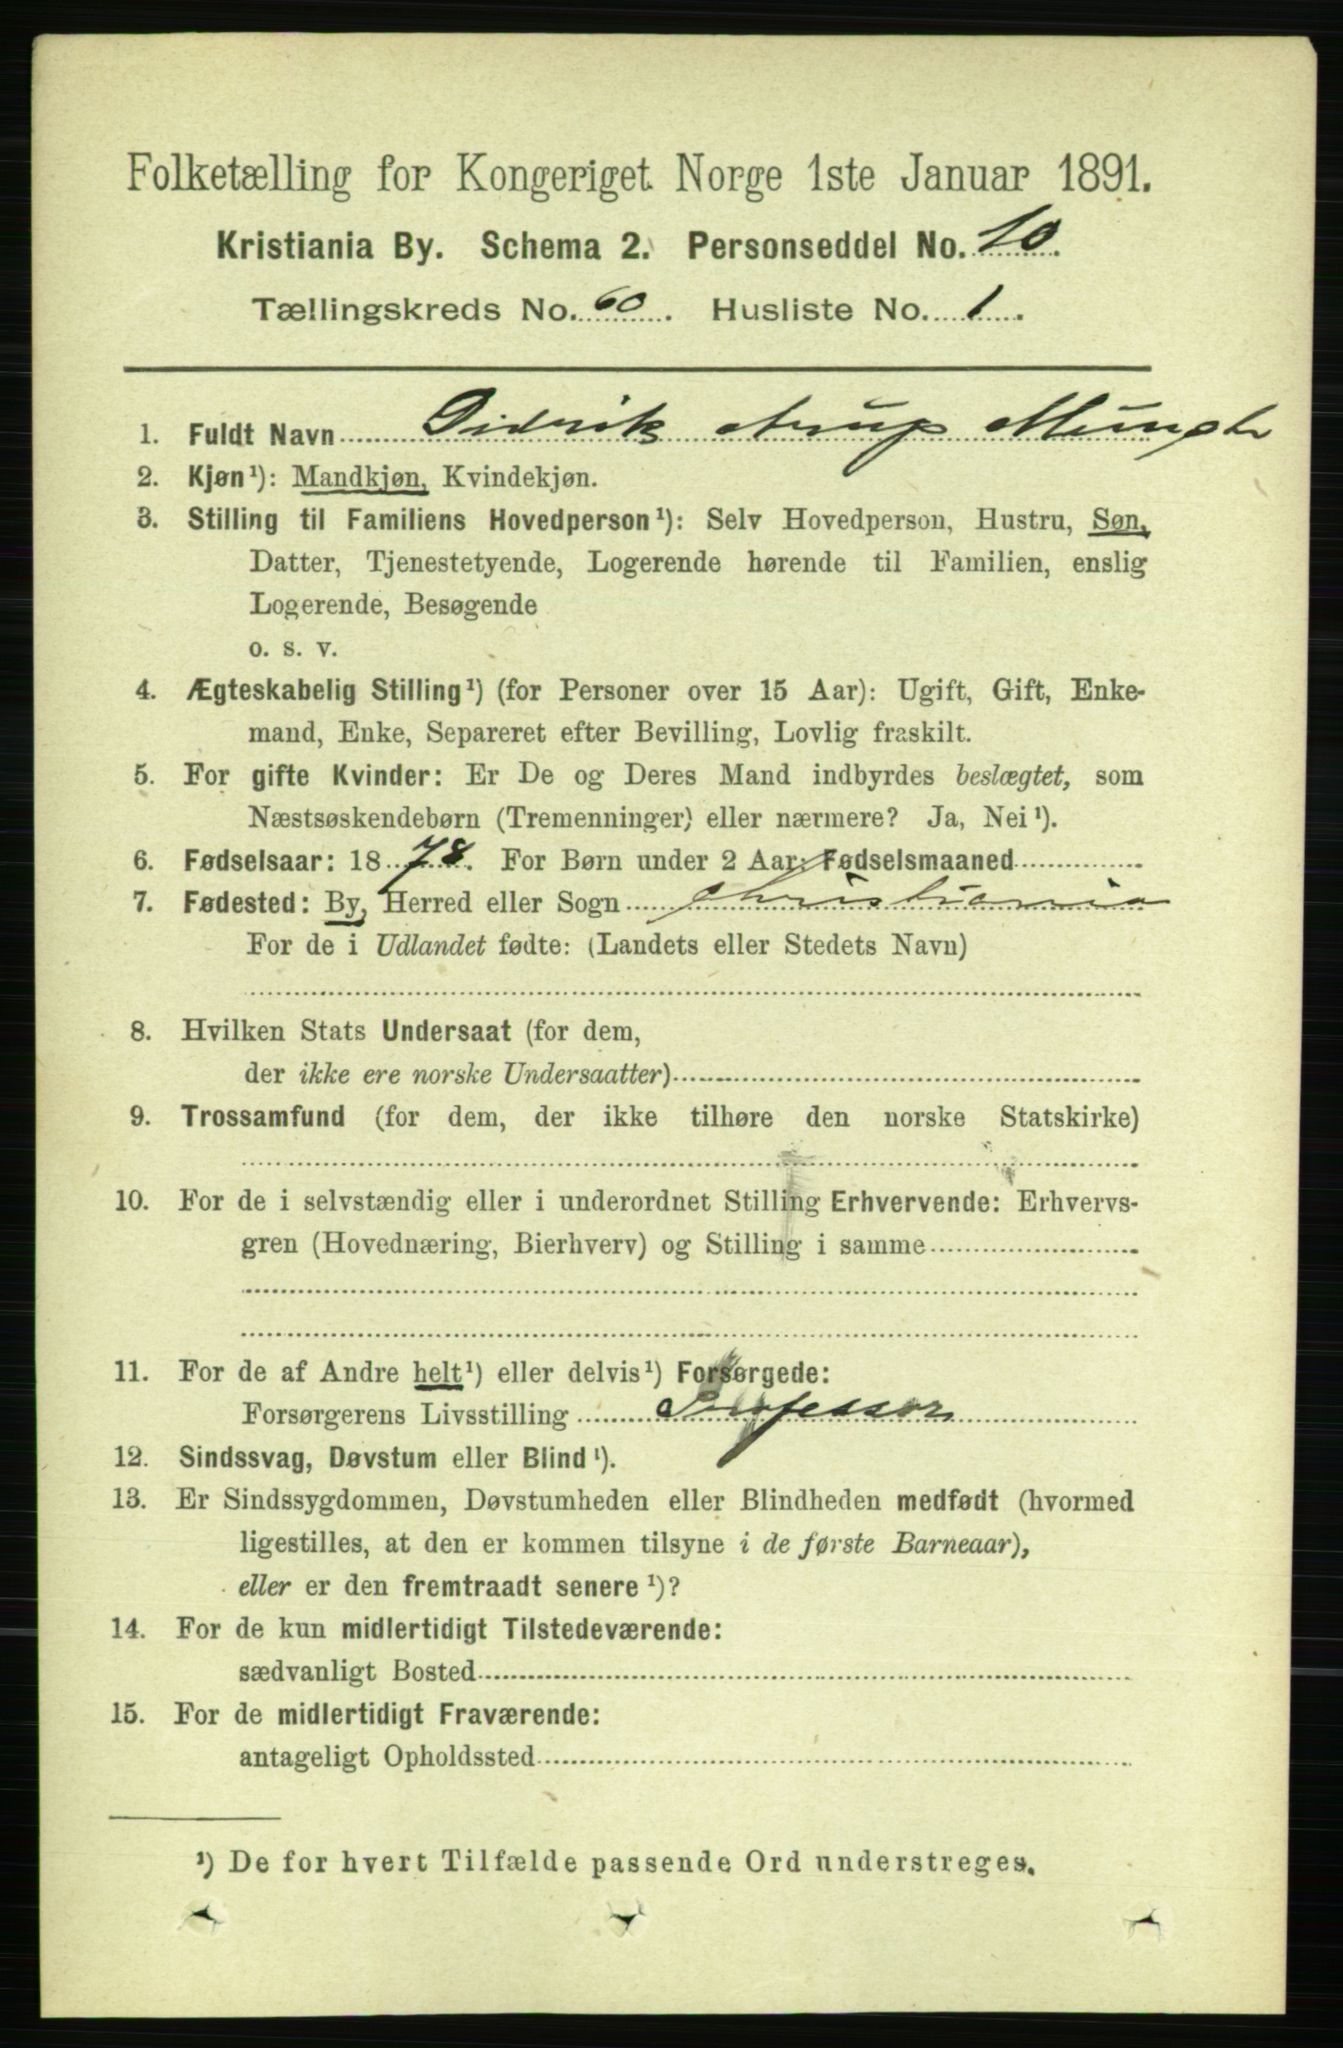 Folketælling for Kongeriget Norge 1ste Januar 1891.
Kristiania By. Schema 2. Personseddel No. 10.
Tællingskreds No. 60. Husliste No. 1.
1. Fuldt Navn Didrik Arup
2. Kjøn¹): Mandkjøn, Kvindekjøn.
3. Stilling til Familiens Hovedperson¹): Selv Hovedperson, Hustru, Søn,
Datter, Tjenestetyende, Logerende hørende til Familien, enslig
Logerende, Besøgende
o. s. v.
4. Ægteskabelig Stilling¹) (for Personer over 15 Aar): Ugift, Gift, Enke-
mand, Enke, Separeret efter Bevilling, Lovlig fraskilt.
5. For gifte Kvinder: Er De og Deres Mand indbyrdes beslægtet, som
Næstsøskendebørn (Tremenninger) eller nærmere? Ja, Nei¹).
6. Fødselsaar: 1878. For Børn under 2 Aar: Fødselsmaaned
7. Fødested: By, Herred eller Sogn Christiania
For de i Udlandet fødte: (Landets eller Stedets Navn)
8. Hvilken Stats Undersaat (for dem,
der ikke ere norske Undersaatter)
9. Trossamfund (for dem, der ikke tilhøre den norske Statskirke)
10. For de i selvstændig eller i underordnet Stilling Erhvervende: Erhvervs-
gren (Hovednæring, Bierhverv) og Stilling i samme
11. For de af Andre helt¹) eller delvis¹) Forsørgede:
Forsørgerens Livsstilling Professor
12. Sindssvag, Døvstum eller Blind¹).
13. Er Sindssygdommen, Døvstumheden eller Blindheden medfødt (hvormed
ligestilles, at den er kommen tilsyne i de første Barneaar),
eller er den fremtraadt senere¹)?
14. For de kun midlertidigt Tilstedeværende:
sædvanligt Bosted
15. For de midlertidigt Fraværende:
antageligt Opholdssted
¹) De for hvert Tilfælde passende Ord understreges.